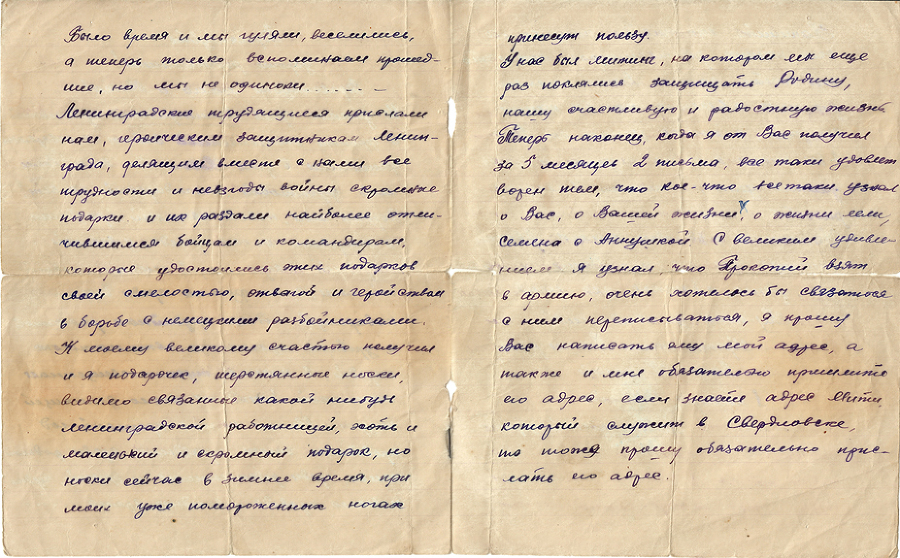 Было время и мы гуляли, веселились,
а теперь только вспоминаем прошед-
шие, но мы не одиноки........
Ленинградские трудящиеся прислали
нам, героическим защитникам Ленин-
града, делящим вместе с нами все
трудности и невзгоды войны скромные
подарки и их раздали наиболее отли-
чившимся бойцам и командирам,
которые удостоились этих подарков
своей смелостью, отвагой и геройством
в борьбе с немецкими разбойниками.
К моему великому счастью получил
и я подарочек, шерстянные носки,
видимо связанные какой нибудь
ленинградской работницей, хоть и
маленький и скромный подарок, но
носки сейчас в зимнее время, при
моих уже помороженных ногах
принесут пользу.
У нас был митинг, на котором мы еще
раз поклялись защищать Родину,
нашу счастливую и радостную жизнь
Теперь наконец, когда я от Вас получил
за 5 месяцев 2 письма, все таки удовлет
ворен тем, что кое-что всетаки узнал
о Вас, о Вашей жизни, о жизни
семена с Аннушкой. С великим удивле-
нием я узнал, что Прокопий взят
в армию, очень хотелось бы связаться
с ним переписываться, я прошу
Вас написать ему мой адрес, а
также и мне обязательно пришлите
его адрес, если знаете адрес Мити
который служит в Свердловске,
то тоже прошу обязательно прис-
лать его адрес.